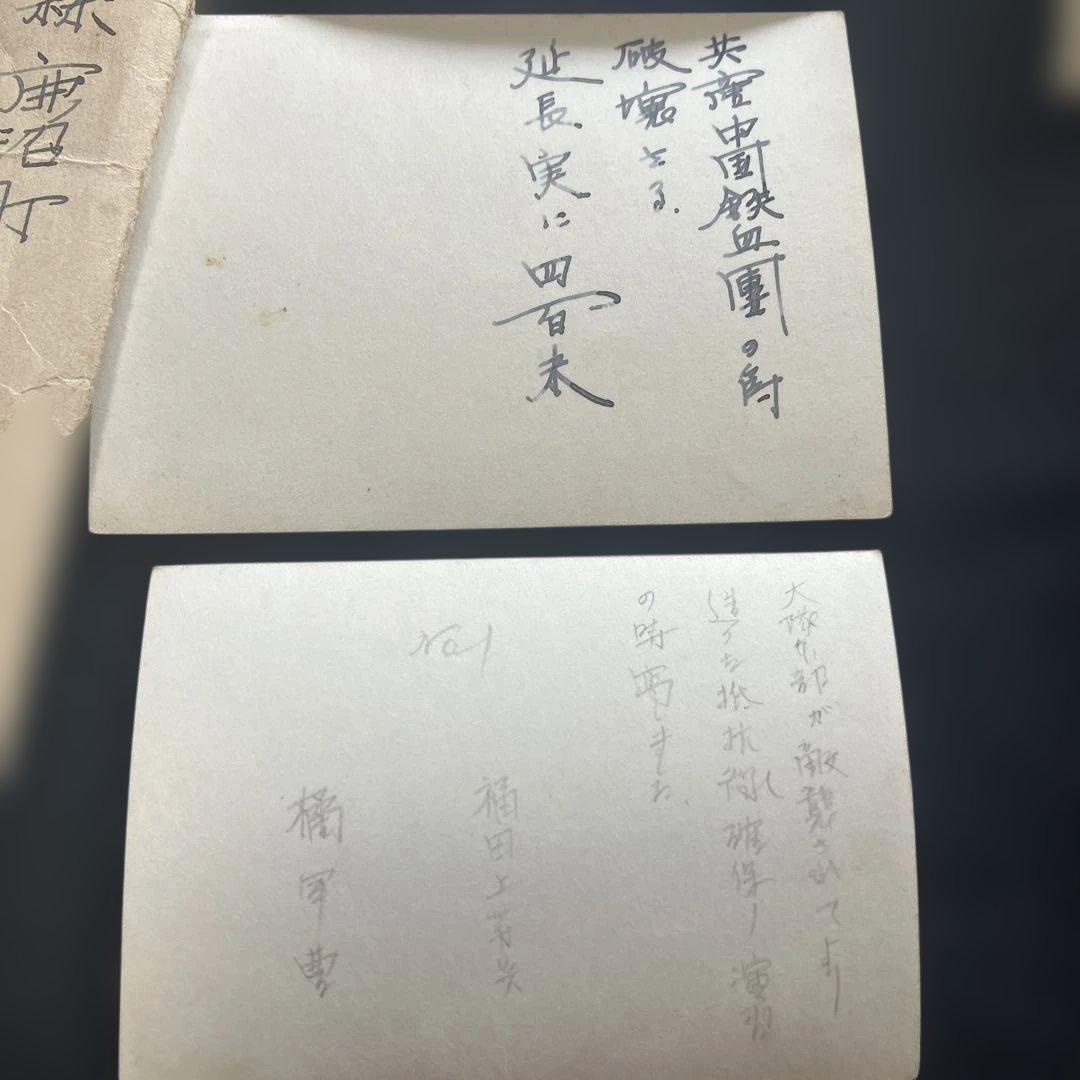 共産中国鉄血團の為
破壊さる.
延長実に四百米
大隊本部が敵襲されてより
造った抵抗線確保ノ演習
の時写しました.
No1
福田上等兵
橘軍曹